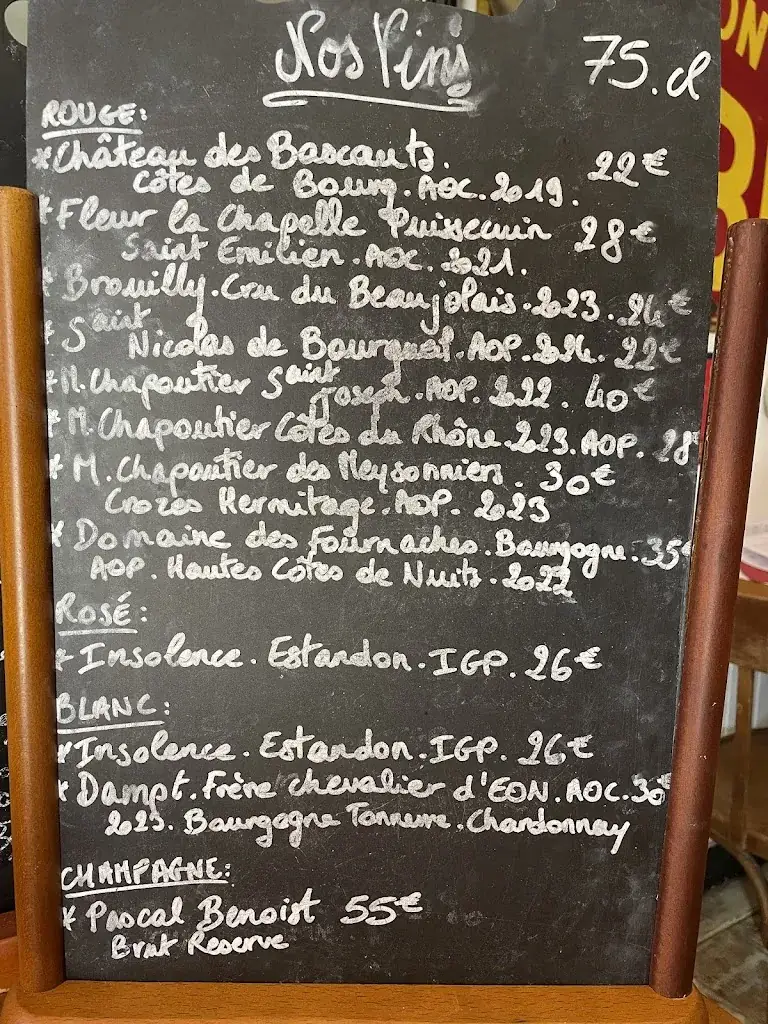 Nos Vins 75.cl
ROUGE:
*Château des Bascauts. 22€
Côtes de Bourg. AOC. 2019.
*Fleur la Chapelle Puisseguin 28€
Saint Emilien. AOC. 2021.
*Brouilly. Cru du Beaujolais. 2023. 24€
*Saint
Nicolas de Bourgueil. AOP. 2024. 22€
*M. Chapoutier Saint
Joseph. AOP. 2022. 40€
*M. Chapoutier Côtes du Rhône. 2023. AOP. 28
*M. Chapoutier des Meysonniers. 30€
Crozes Hermitage. AOP. 2023
*Domaine des Fournaches. Bourgogne. 35€
AOP. Hautes Côtes de Nuits. 2022
ROSÉ:
*Insolence. Estandon. IGP. 26€
BLANC:
*Insolence. Estandon. IGP. 26€
*Dampt. Frère chevalier d'EON. AOC. 30€
2023. Bourgogne Tonnerre. Chardonnay
CHAMPAGNE:
*Pascal Benoist 55€
Brut Reserve